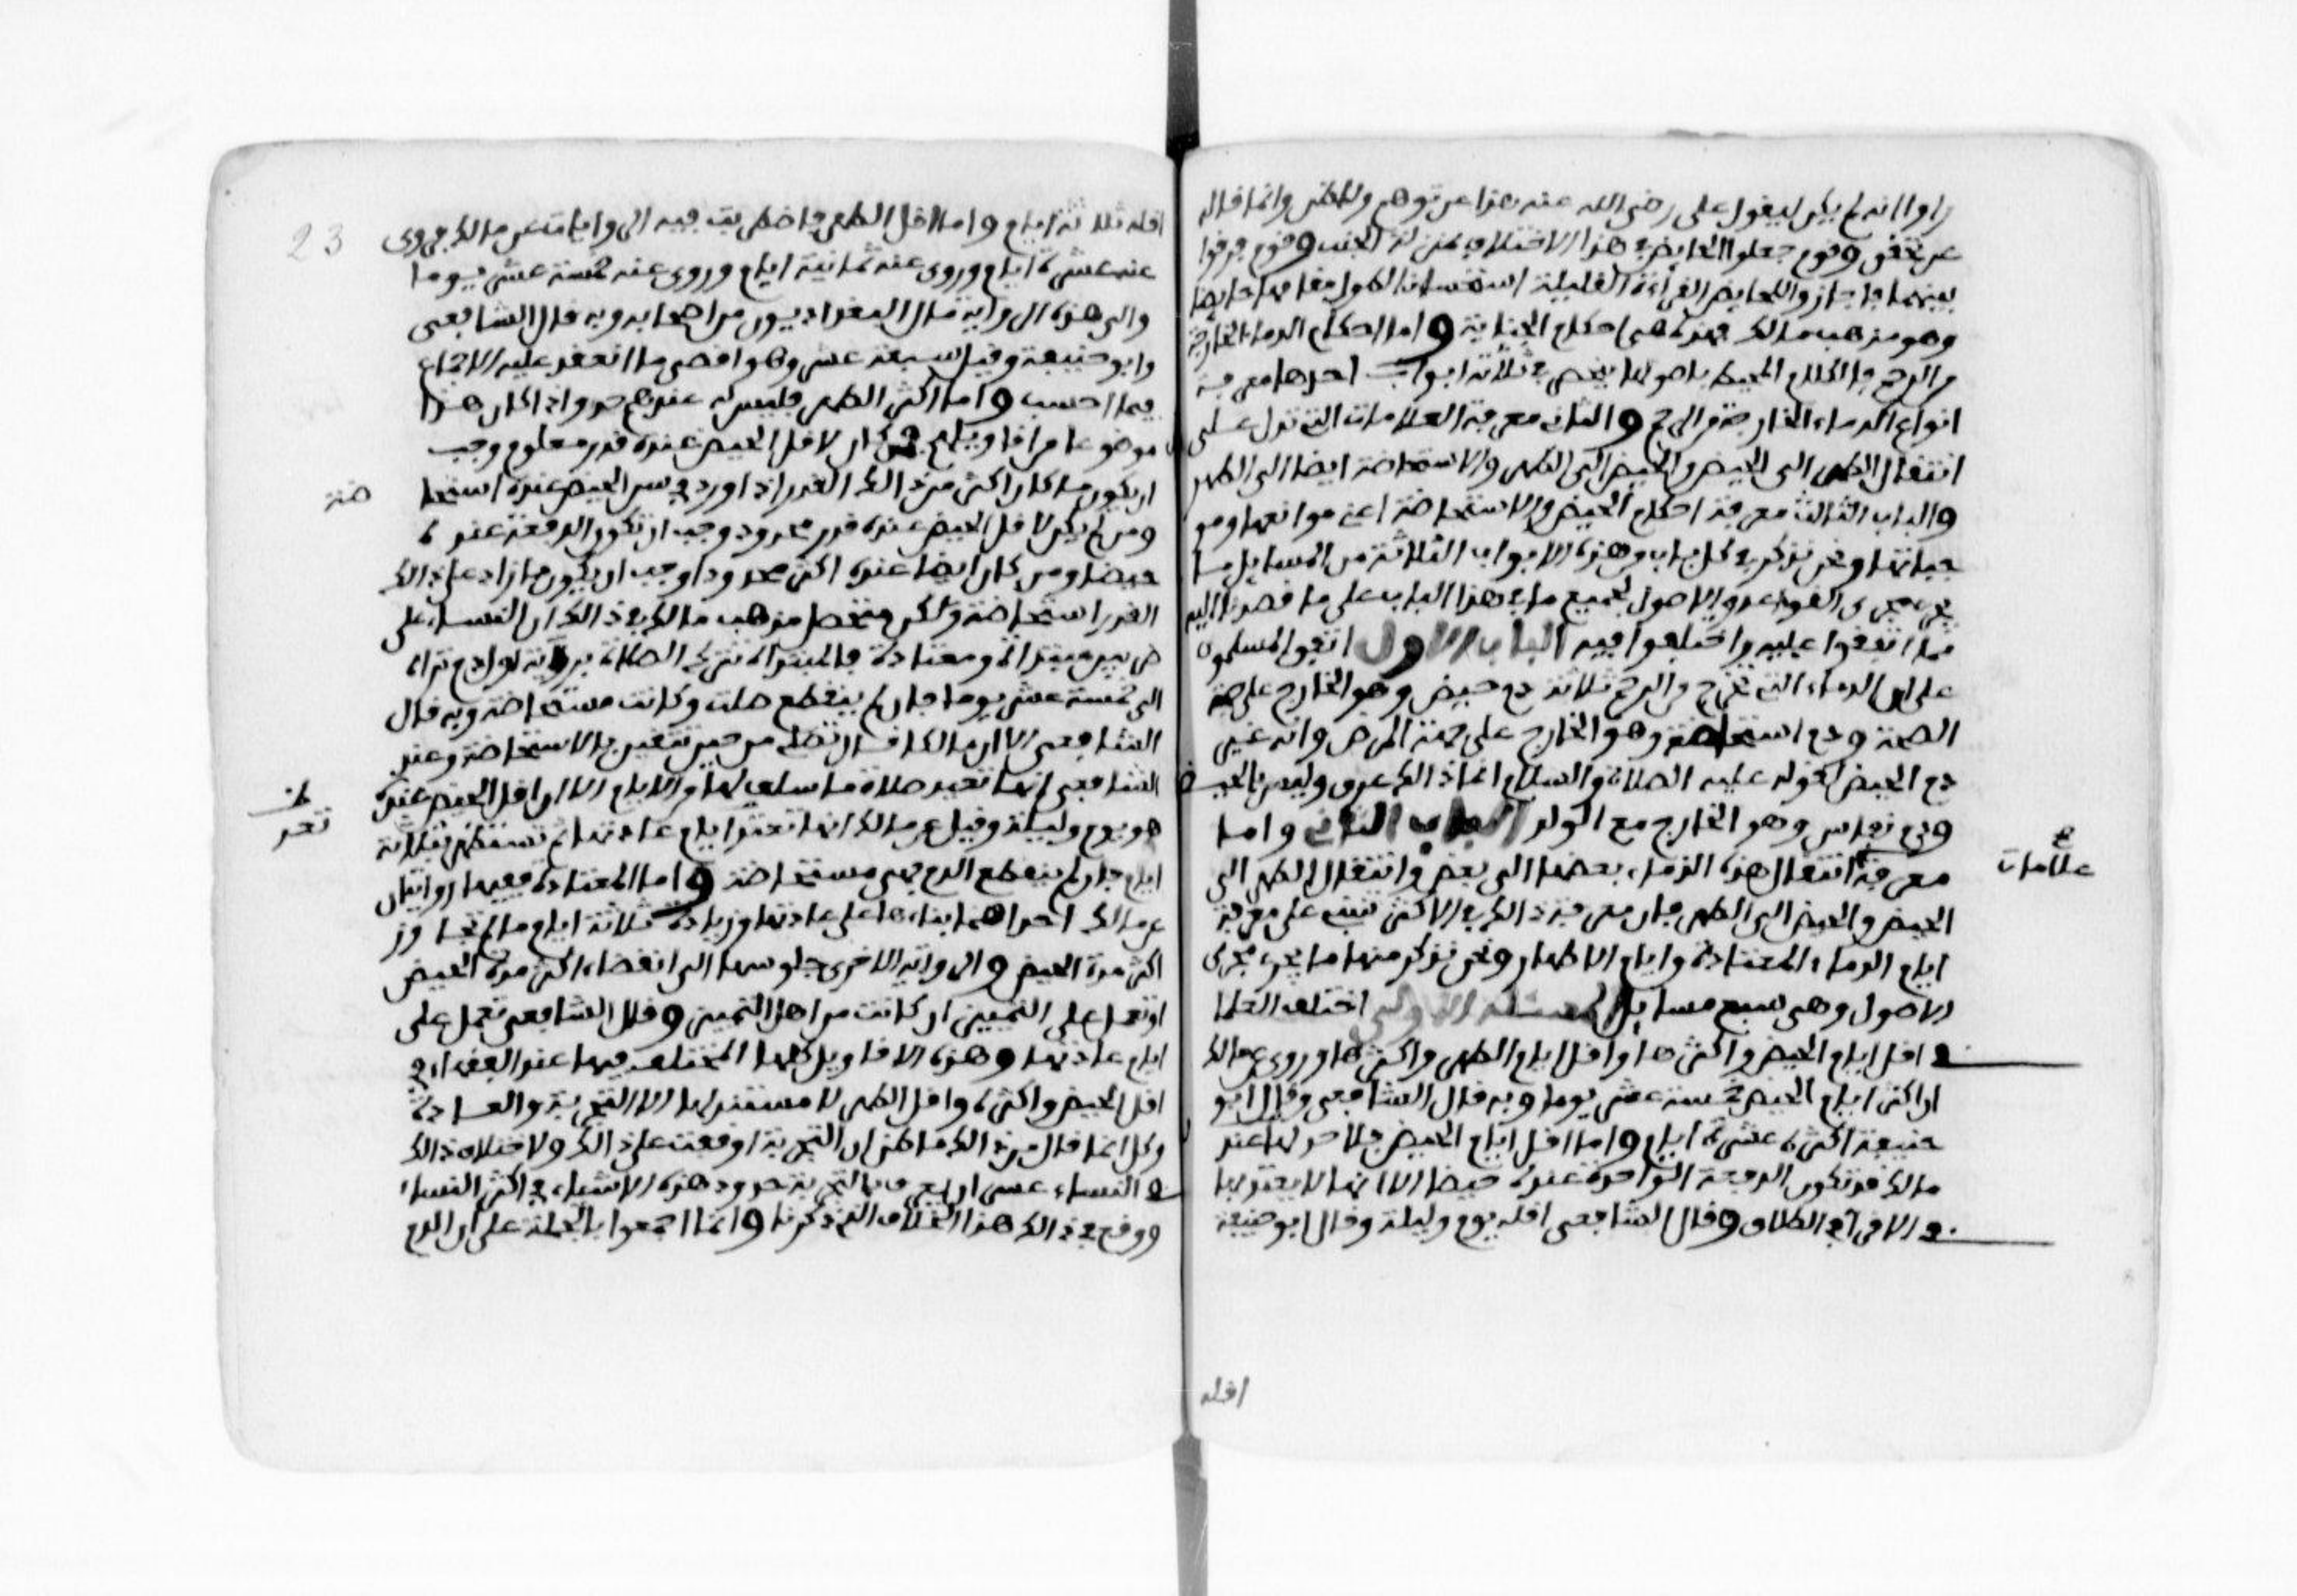 راوا انه لم يكن ليقول على رضى الله عنه هذا عن توهم ولا ظن وانما قاله
عن تحقق وقوم جعلوا الحايض في هذا الاختلاف بمنزلة الجنب وقوم فرقوا
بينهما فاجازوا للحايض القراءة القليلة استحسانا لطول مقامها حايضا
وهو مذهب مالك فهذه هي احكام الجنابة واما احكام الدماء الخارجة
من الرحم فالكلام المحيط باصولها ينحصر في ثلاثة ابواب احدها معرفة
انواع الدماء الخارجة من الرحم والثاني معرفة العلامات التي تدل على
انتقال الطهر الى الحيض والحيض الى الطهر والاستحاضة ايضا الى الطهر
والباب الثالث معرفة احكام الحيض والاستحاضة اعنى موانعها ومو
جباتها ونحن نذكر في كل باب من هذه الابواب الثلاثة من المسايل ما
يجرى مجرى القواعد والاصول لجميع ما في هذا الباب على ما قصدنا اليه
مما اتفقوا عليه واختلفوا فيه الباب الاول اتفق المسلمون
على ان الدماء التي تخرج من الرحم ثلاثة دم حيض وهو الخارج على جهة
الصحة ودم استحاضة وهو الخارج على جهة المرض وانه غير
دم الحيض لقوله عليه الصلاة والسلام انما ذالك عرق وليس بالحيضة
ودم نفاس وهو الخارج مع الولد الباب الثاني واما
معرفة انتقال هذه الدماء بعضها الى بعض وانتقال الطهر الى
علامات
الحيض والحيض الى الطهر فان معرفة ذالك في الاكثر تنبنى على معرفة
ايام الدماء المعتادة وايام الاطهار ونحن نذكر منها ما يجرى مجرى
الاصول وهي سبع مسايل المسئلة الاولى اختلف العلما
في اقل ايام الحيض واكثرها واقل ايام الطهر واكثرها وروى عن مالك
ان اكثر ايام الحيض خمسة عشر يوما وبه قال الشافعى وقال ابو
حنيفة اكثره عشرة ايام واما اقل ايام الحيض فلا حد لها عند
مالك قد تكون الدفعة الواحدة عنده حيضا الا انها لا يعتد بها
في الاقراء في الطلاق وقال الشافعى اقله يوم وليلة وقال ابو حنيفة
اقله
23
اقله ثلاثة ايام واما اقل الطهر فاضطربت فيه الروايات عن مالك فروى
عنه عشرة ايام وروى عنه ثمانية ايام وروى عنه خمسة عشر يوما
والى هذه الرواية مال البغداديون من اصحابه وبه قال الشافعى
وابو حنيفة وقيل سبعة عشر وهو اقصى ما انعقد عليه الاجماع
فيما احسب واما اكثر الطهر فليس له عندهم حد واذا كان هذا
موضوعا من اقاويلهم فمن كان لاقل الحيض عنده قدر معلوم وجب
ان يكون ما كان اكثر من ذالك القدر اذا ورد في سن الحيض عنده استحا
ضة
ومن لم يكن لاقل الحيض عنده قدر محدود وجب ان تكون الدفعة عنده
حيضا ومن كان ايضا عنده اكثره محدودا وجب ان يكون ما زاد على ذالك
القدر استحاضة ولكن متحصل مذهب مالك في ذالك ان النساء على
ضربين مبتداة ومعتادة فالمبتداة تترك الصلاة برؤية اول دم تراه
الى خمسة عشر يوما فان لم ينقطع صلت وكانت مستحاضة وبه قال
الشافعى الا ان مالكا قال تصلى من حين تتيقن بالاستحاضة وعند
الشافعى انها تعيد صلاة ما سلف لها من الايام الا ان اقل الحيض عنده
هو يوم وليلة وقيل عن مالك انها تعتد ايام عادتها ثم تستظهر بثلاثة
تعد
ايام فان لم ينقطع الدم فهى مستحاضة واما المعتادة ففيها روايتان
عن مالك احداهما بناءها على عادتها وزيادة ثلاثة ايام ما لم تتجاوز
اكثر مدة الحيض والرواية الاخرى جلوسها الى انقضاء اكثر مدة الحيض
او تعمل على التمييز ان كانت من اهل التمييز وقال الشافعى تعمل على
ايام عادتها وهذه الاقاويل كلها المختلف فيها عند الفقهاء في
اقل الحيض واكثره واقل الطهر لا مستند لها الا التجربة والعادة
وكل انما قال من ذالك ما ظن ان التجربة اوقفته على ذالك ولاختلاف ذالك
في النساء عسر ان يعرف بالتجربة حدود هذه الاشياء في اكثر النساء
ووقع في ذالك هذا الخلاف الذي ذكرنا وانما اجمعوا بالجملة على ان الدم